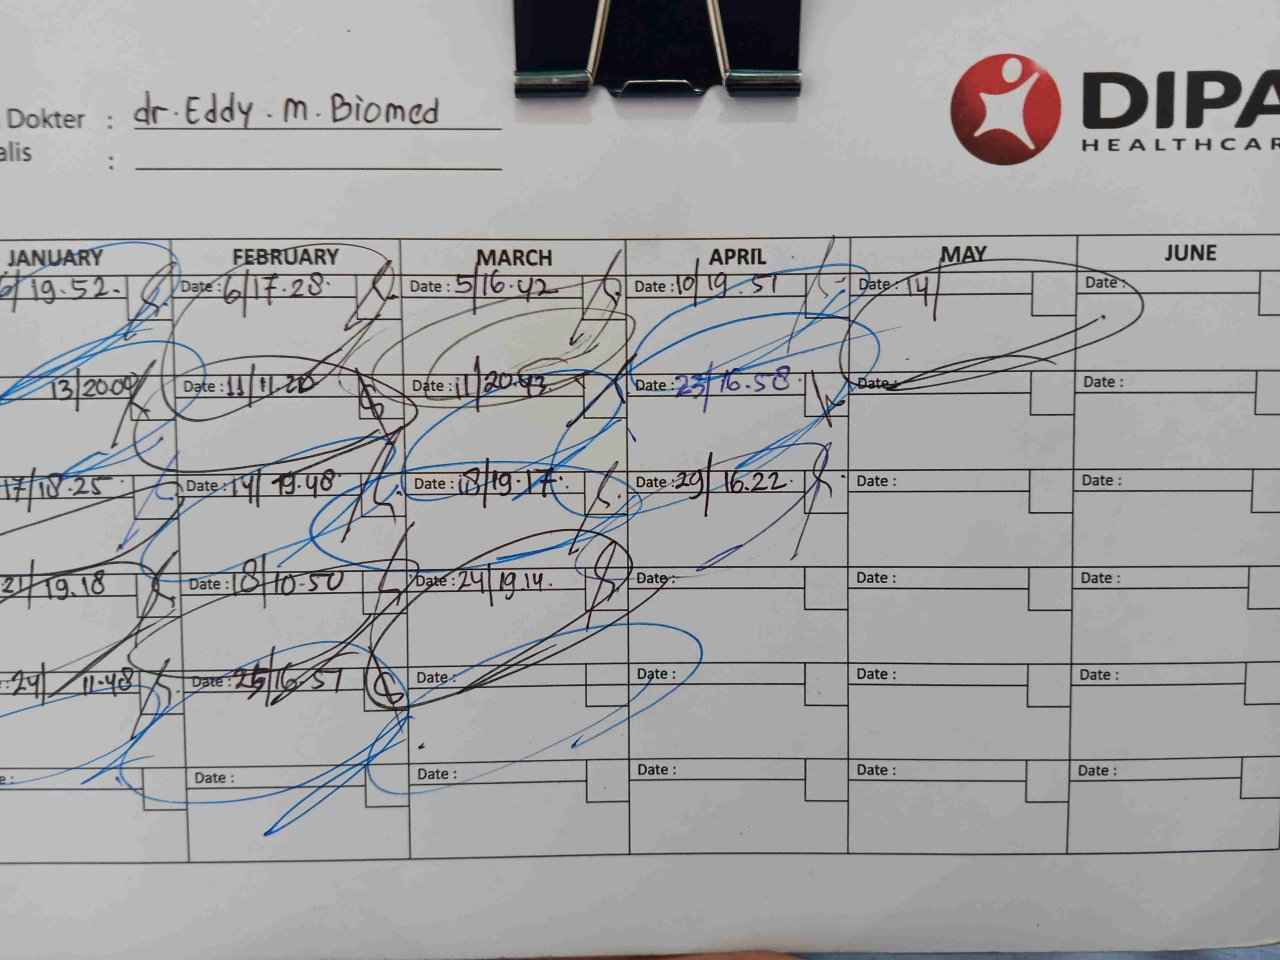 Dokter : dr. Eddy. M. Biomed
alis :
DIPA
HEALTHCAR
JANUARY FEBRUARY MARCH APRIL MAY JUNE
6/19.52. Date : 6/17.28. Date : 5/16.42 Date : 10/19.51 Date : 14/ Date :
13/20.09 Date : 11/11.20 Date : 11/20.43 Date : 23/16.58. Date : Date :
17/18.25 Date : 14/19.48. Date : 18/19.17. Date : 29/16.22. Date : Date :
21/19.18 Date : 18/10.50 Date : 24/19.14. Date : Date : Date :
: 24/11.48 Date : 25/16.51 Date : Date : Date : Date :
e : Date : Date : Date : Date : Date :